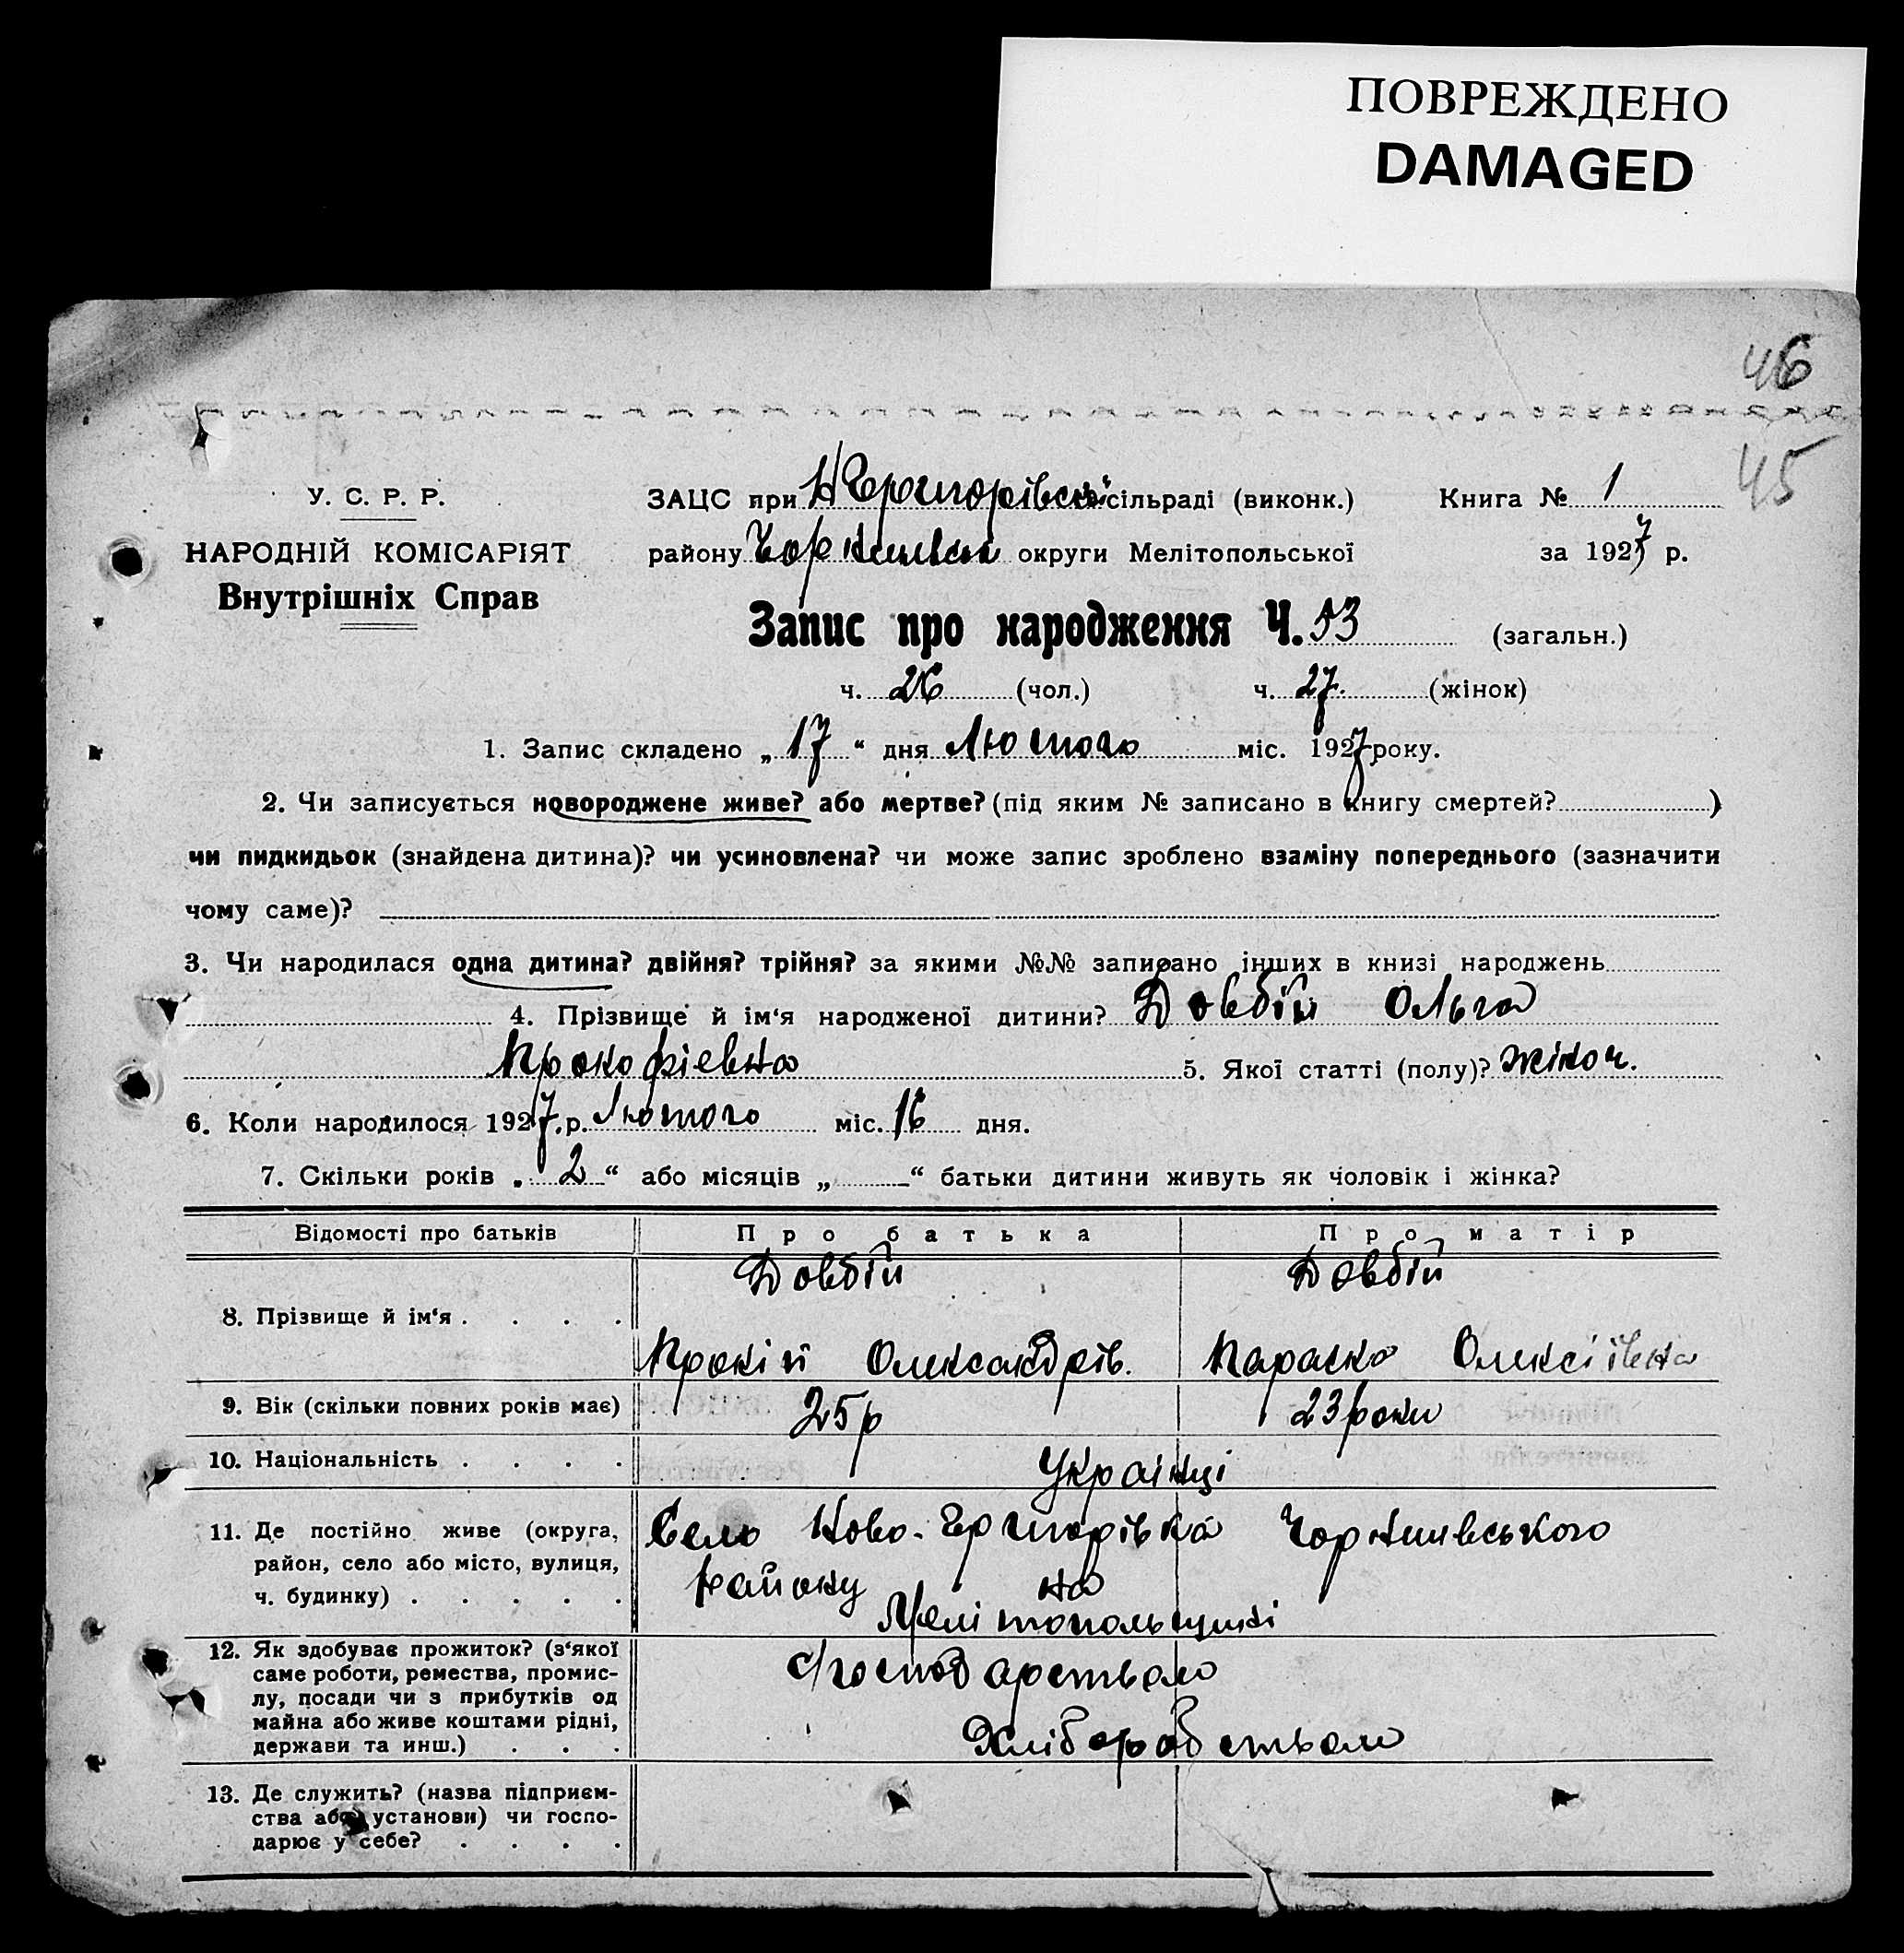 ПОВРЕЖДЕНО
DAMAGED
46
45
У. С. Р. Р.
НАРОДНІЙ КОМІСАРІЯТ
Внутрішніх Справ
ЗАЦС при сільраді (виконк.) Книга № 1
району округи Мелітопольської за 1927 р.
Запис про народження Ч. 53 (загальн.)
ч. 26 (чол.) ч. 27. (жінок)
1. Запис складено „17“ дня Лютого міс. 1927 року.
2. Чи записується новороджене живе? або мертве? (під яким № записано в книгу смертей? )
чи пидкидьок (знайдена дитина)? чи усиновлена? чи може запис зроблено взаміну попереднього (зазначити
чому саме)?
3. Чи народилася одна дитина? двійня? трійня? за якими №№ записано інших в книзі народжень
4. Прізвище й ім‘я народженої дитини? Довбій Ольга
Прокофіевна 5. Якої статті (полу)? жіноч.
6. Коли народилося 1927. р. Лютого міс. 16 дня.
7. Скільки років „2“ або місяців „ “ батьки дитини живуть як чоловік і жінка?
Відомості про батьків Про батька Про матір
Довбій Довбій
8. Прізвище й ім‘я . . . .
Прокій Олександрів. Параска Олексіївна
9. Вік (скільки повних років має) 25р 23 роки
10. Національність . . . . Українці
11. Де постійно живе (округа, Село Ново-Григорівка Чорнинівського
район, село або місто, вулиця, району на
ч. будинку) . . . . . Мелітопольщині
12. Як здобуває прожиток? (з‘якої
саме роботи, ремества, промис- господарством
лу, посади чи з прибутків од
майна або живе коштами рідні, Хліборобством
держави та инш.) . . .
13. Де служить? (назва підприєм-
ства або установи) чи госпо-
дарює у себе? . . . .